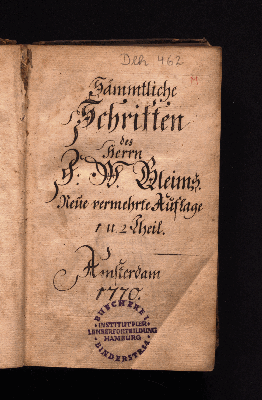 Deh 462
Sämmtliche
Schriften
des
Herrn
J. W. Gleims.
Neüe vermehrte Auflage
1 u. 2 Theil.
Amsterdam
1770.
BUECHEREI
INSTITUT FUER
LEHRERFORTBILDUNG
HAMBURG
BINDERSTR. 34